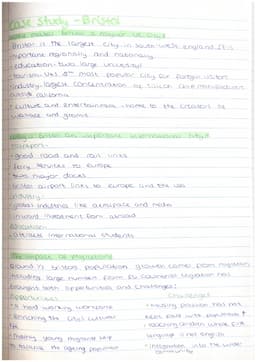 Case Study - Bristol
What makes Bristol a major UK city?
Bristol is the largest city in south west england. It is
important regionally and nationally.
- education - two large university!
- tourism - UKs 8th most popular city for foreign visitors
- industry - largest concentration of silicon chip manufacturers
outside california
- culture and entertainment - home to the creators of
wallace and gromit
Why is Bristol an important international city?
transport -
- good road and rail links
- ferry services to europe
- two major docks
- bristol airport links to europe and the usa
industry:
- global industries like aerospace and media
- inward investment from abroad
education:
- attracts international students
The impact of migration
Around ½ bristols population growth comes from migration,
including large numbers from EU countries. Migration has
brought both opportunities and challenges!
Opportunities:
Challenges!
- a hard working workforce
- housing problem has not
- enriching the city's cultural
kept pace with population ↑
life
- teaching children whose first
- mainly young migrants help
language is not english
to balance the ageing population
- integration into the wider
community